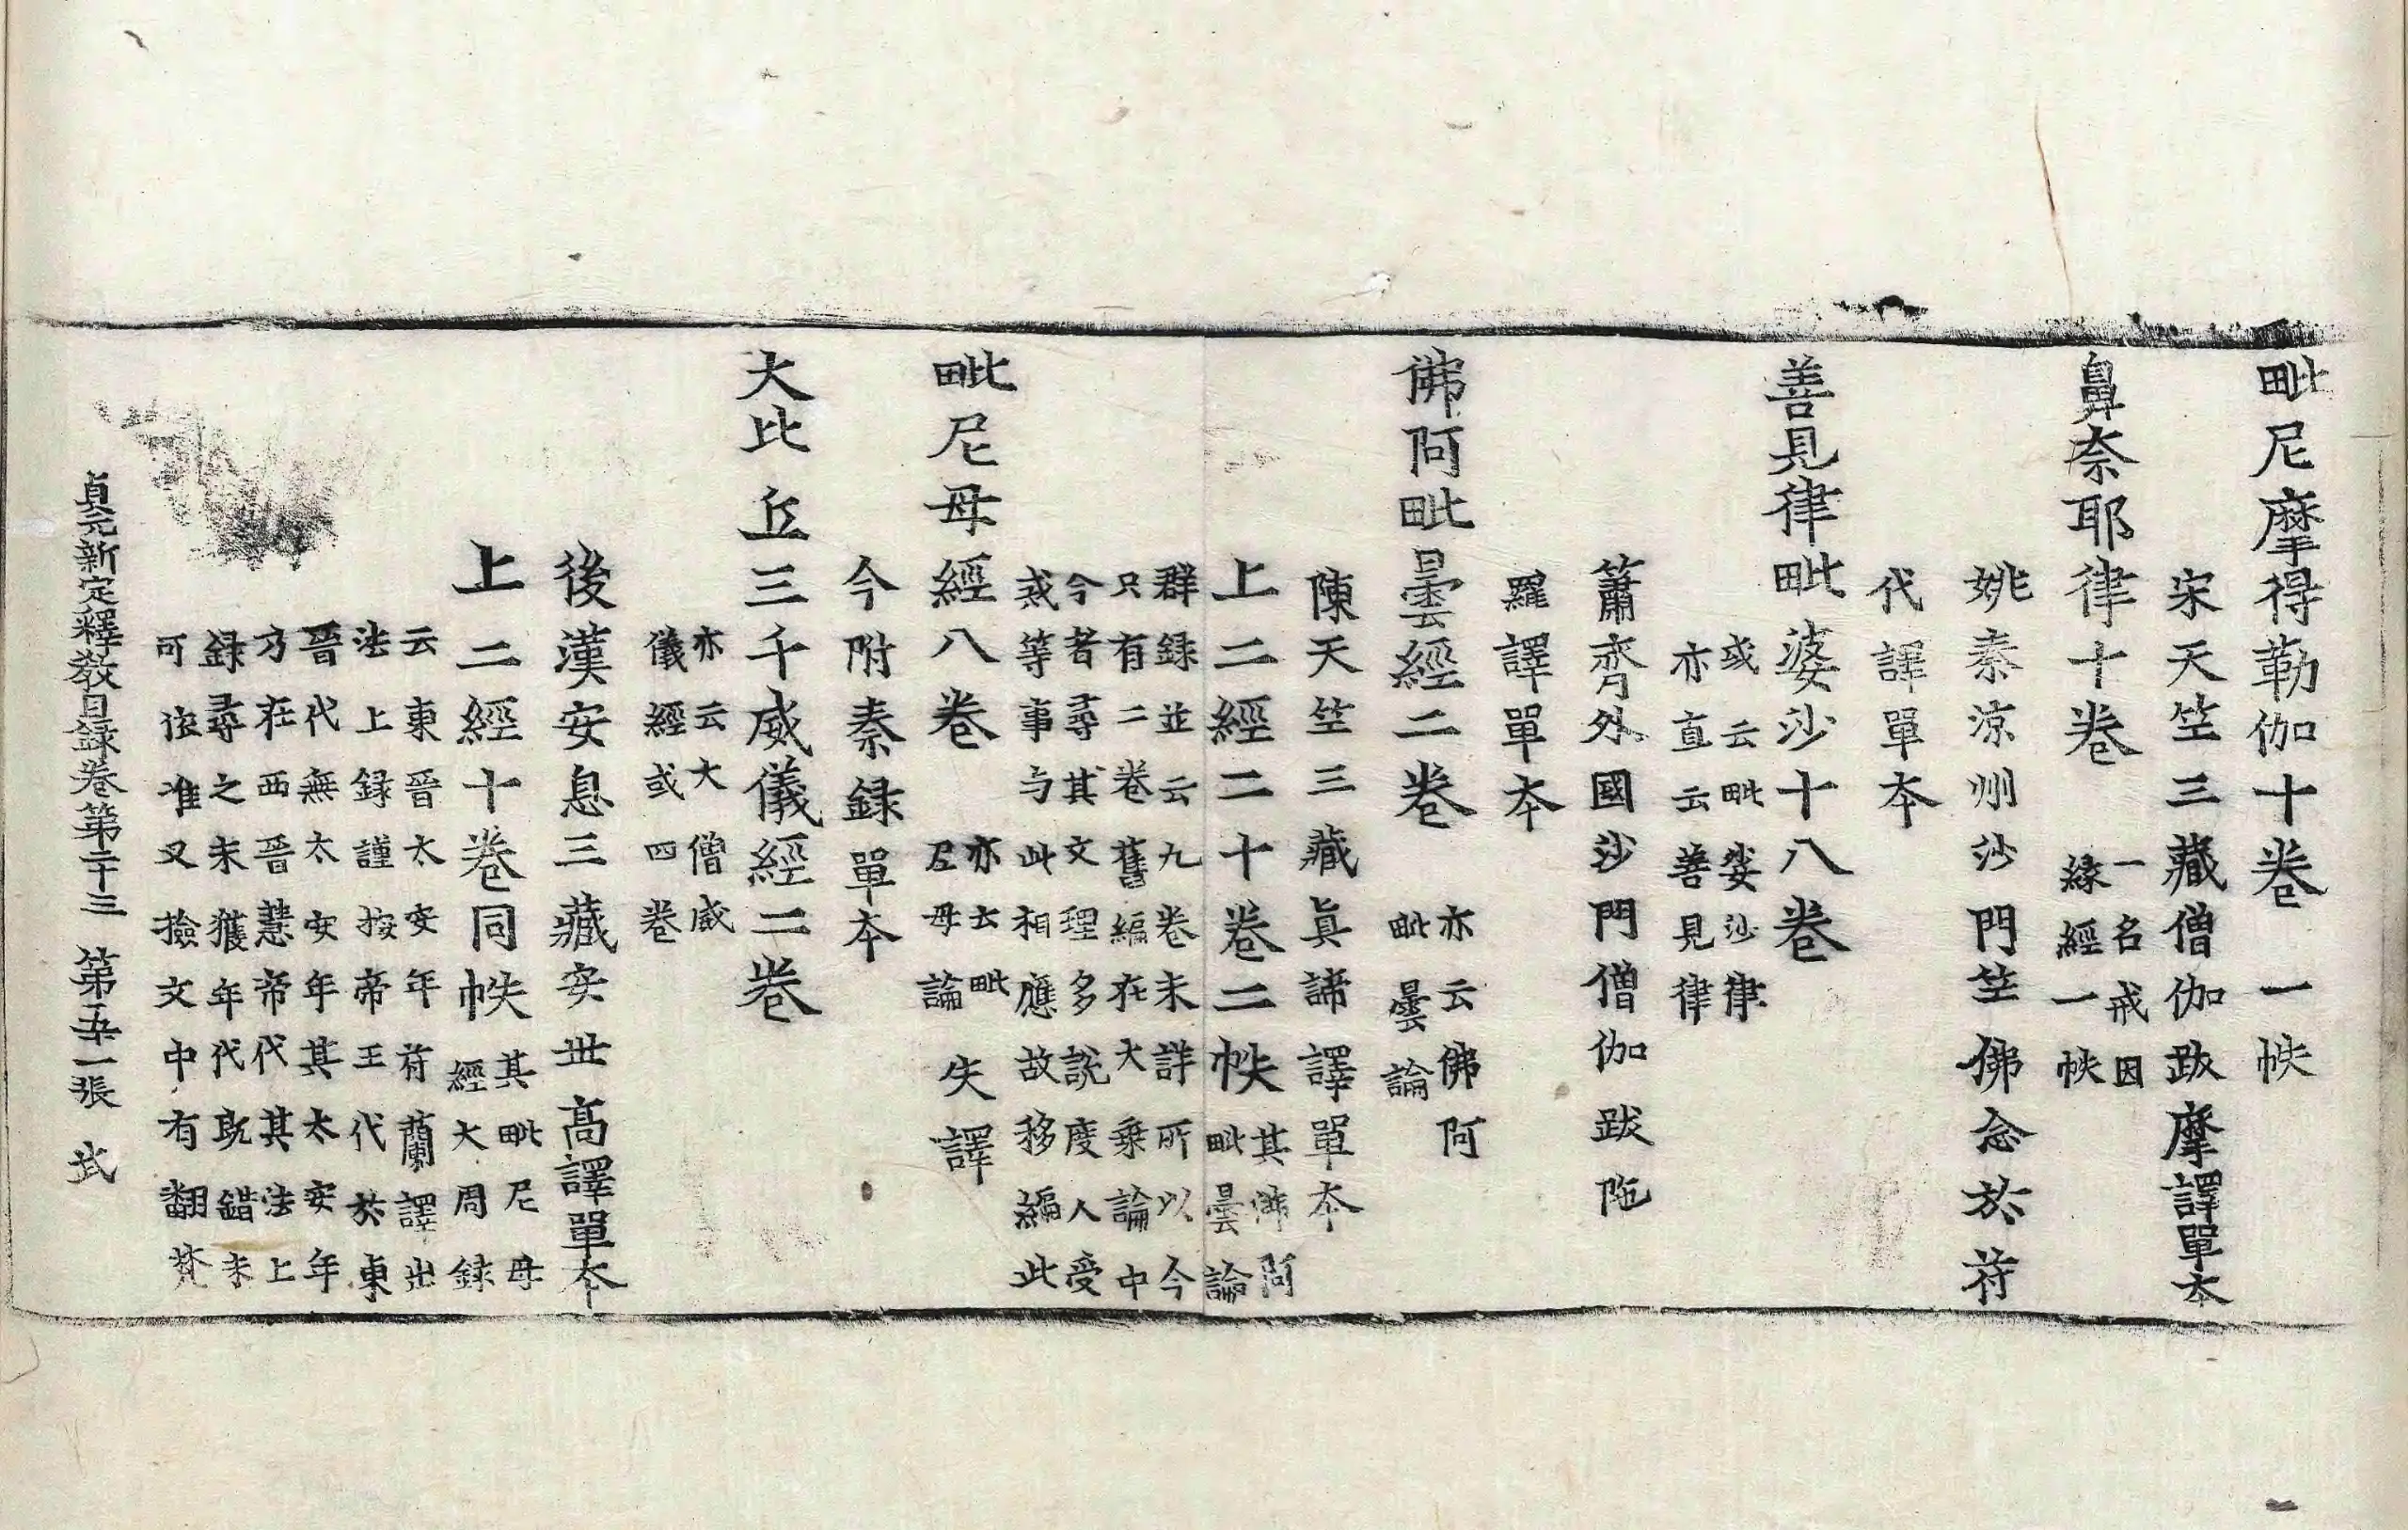 毗尼摩得勒伽十卷　一帙
宋天竺三藏僧伽跋摩譯單本
鼻奈耶律十卷
一名戒因
緣經一帙
姚秦涼州沙門竺佛念於苻
代譯單本
善見律毗婆沙十八卷
或云毗婆沙律
亦直云善見律
簫齊外國沙門僧伽跋陁
羅譯單本
佛阿毗曇經二卷
亦云佛阿
毗曇論
陳天竺三藏真諦譯單本
上二經二十卷二帙
其佛阿
毗曇論
群録並云九卷未詳所以今
只有二卷舊編在大乗論中
今者尋其文理多説度人受
戒等事与此相應故移編此
毗尼母經八卷
亦云毗
尼母論
失譯
今附秦録單本
大比丘三千威儀經二卷
亦云大僧威
儀經或四卷
後漢安息三藏安世髙譯單本
上二經十卷同帙
其毗尼母
經大周録
云東晉太安年苻蘭譯出
法上録謹按帝王代於東
晉代無太安年其太安年
乃在西晉慧帝代其法上
録尋之未獲年代既錯未
可依准又撿文中有翻梵
貞元新定釋教目録卷第二十三　第五一張　武